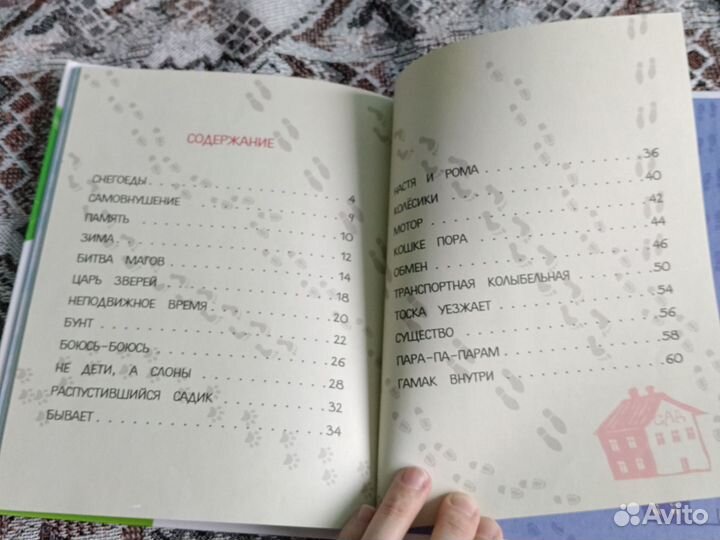 СОДЕРЖАНИЕ
СНЕГОЕДЫ . . . . . . . . . . . . . . . . 4
САМОВНУШЕНИЕ . . . . . . . . . . . . . 9
ПАМЯТЬ . . . . . . . . . . . . . . . . . 10
ЗИМА . . . . . . . . . . . . . . . . . . 12
БИТВА МАГОВ . . . . . . . . . . . . . . 14
ЦАРЬ ЗВЕРЕЙ . . . . . . . . . . . . . . 18
НЕПОДВИЖНОЕ ВРЕМЯ . . . . . . . . . . 20
БУНТ . . . . . . . . . . . . . . . . . . 22
БОЮСЬ-БОЮСЬ . . . . . . . . . . . . . . 26
НЕ ДЕТИ, А СЛОНЫ . . . . . . . . . . . 28
РАСПУСТИВШИЙСЯ САДИК . . . . . . . . . 32
БЫВАЕТ . . . . . . . . . . . . . . . . . 34
НАСТЯ И РОМА . . . . . . . . . . . . . 36
КОЛЁСИКИ . . . . . . . . . . . . . . . 40
МОТОР . . . . . . . . . . . . . . . . . 42
КОШКЕ ПОРА . . . . . . . . . . . . . . 44
ОБМЕН . . . . . . . . . . . . . . . . . 46
ТРАНСПОРТНАЯ КОЛЫБЕЛЬНАЯ . . . . . . . 50
ТОСКА УЕЗЖАЕТ . . . . . . . . . . . . . 54
СУЩЕСТВО . . . . . . . . . . . . . . . 56
ПАРА-ПА-ПАРАМ . . . . . . . . . . . . . 58
ГАМАК ВНУТРИ . . . . . . . . . . . . . 60
САД
Avito